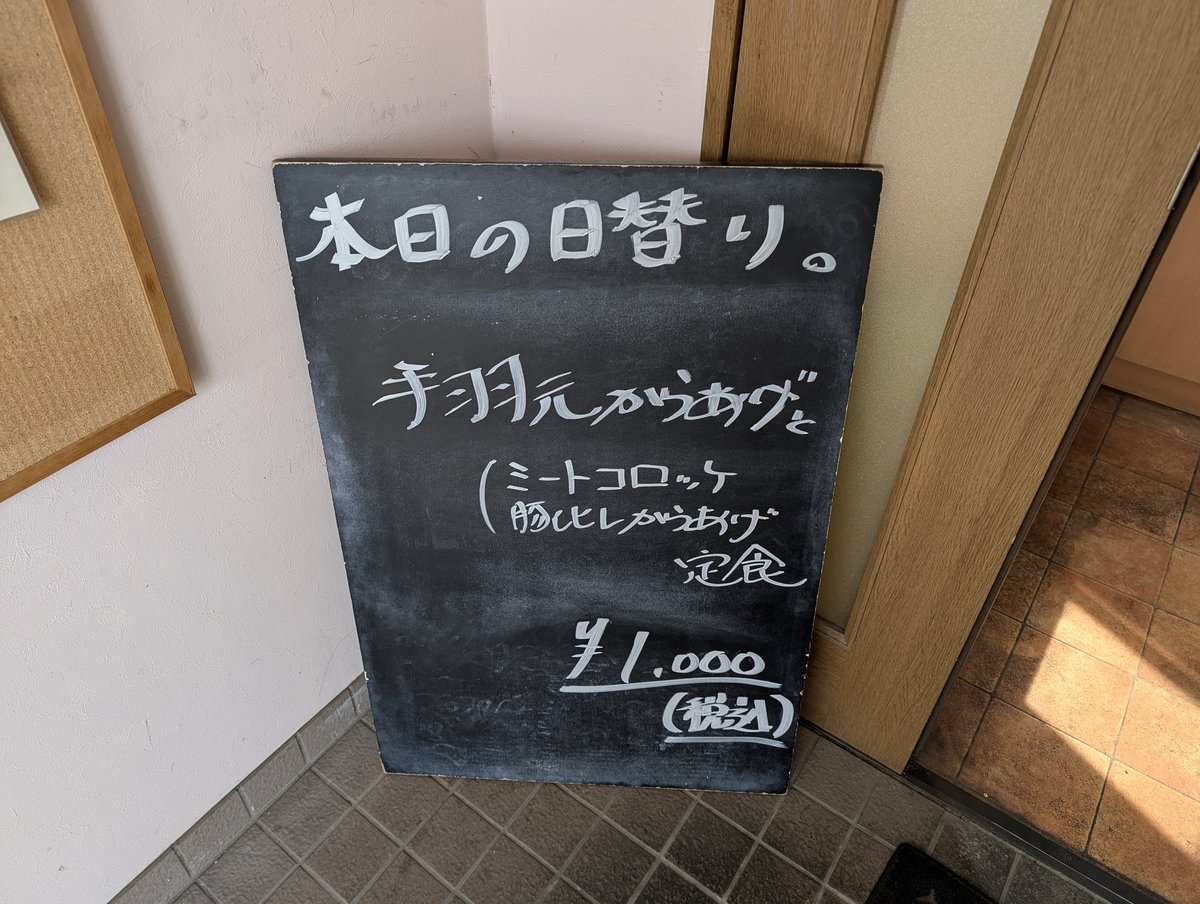 本日の日替り。
手羽元からあげと
(ミートコロッケ
豚ヒレからあげ
定食
¥1,000
(税込)